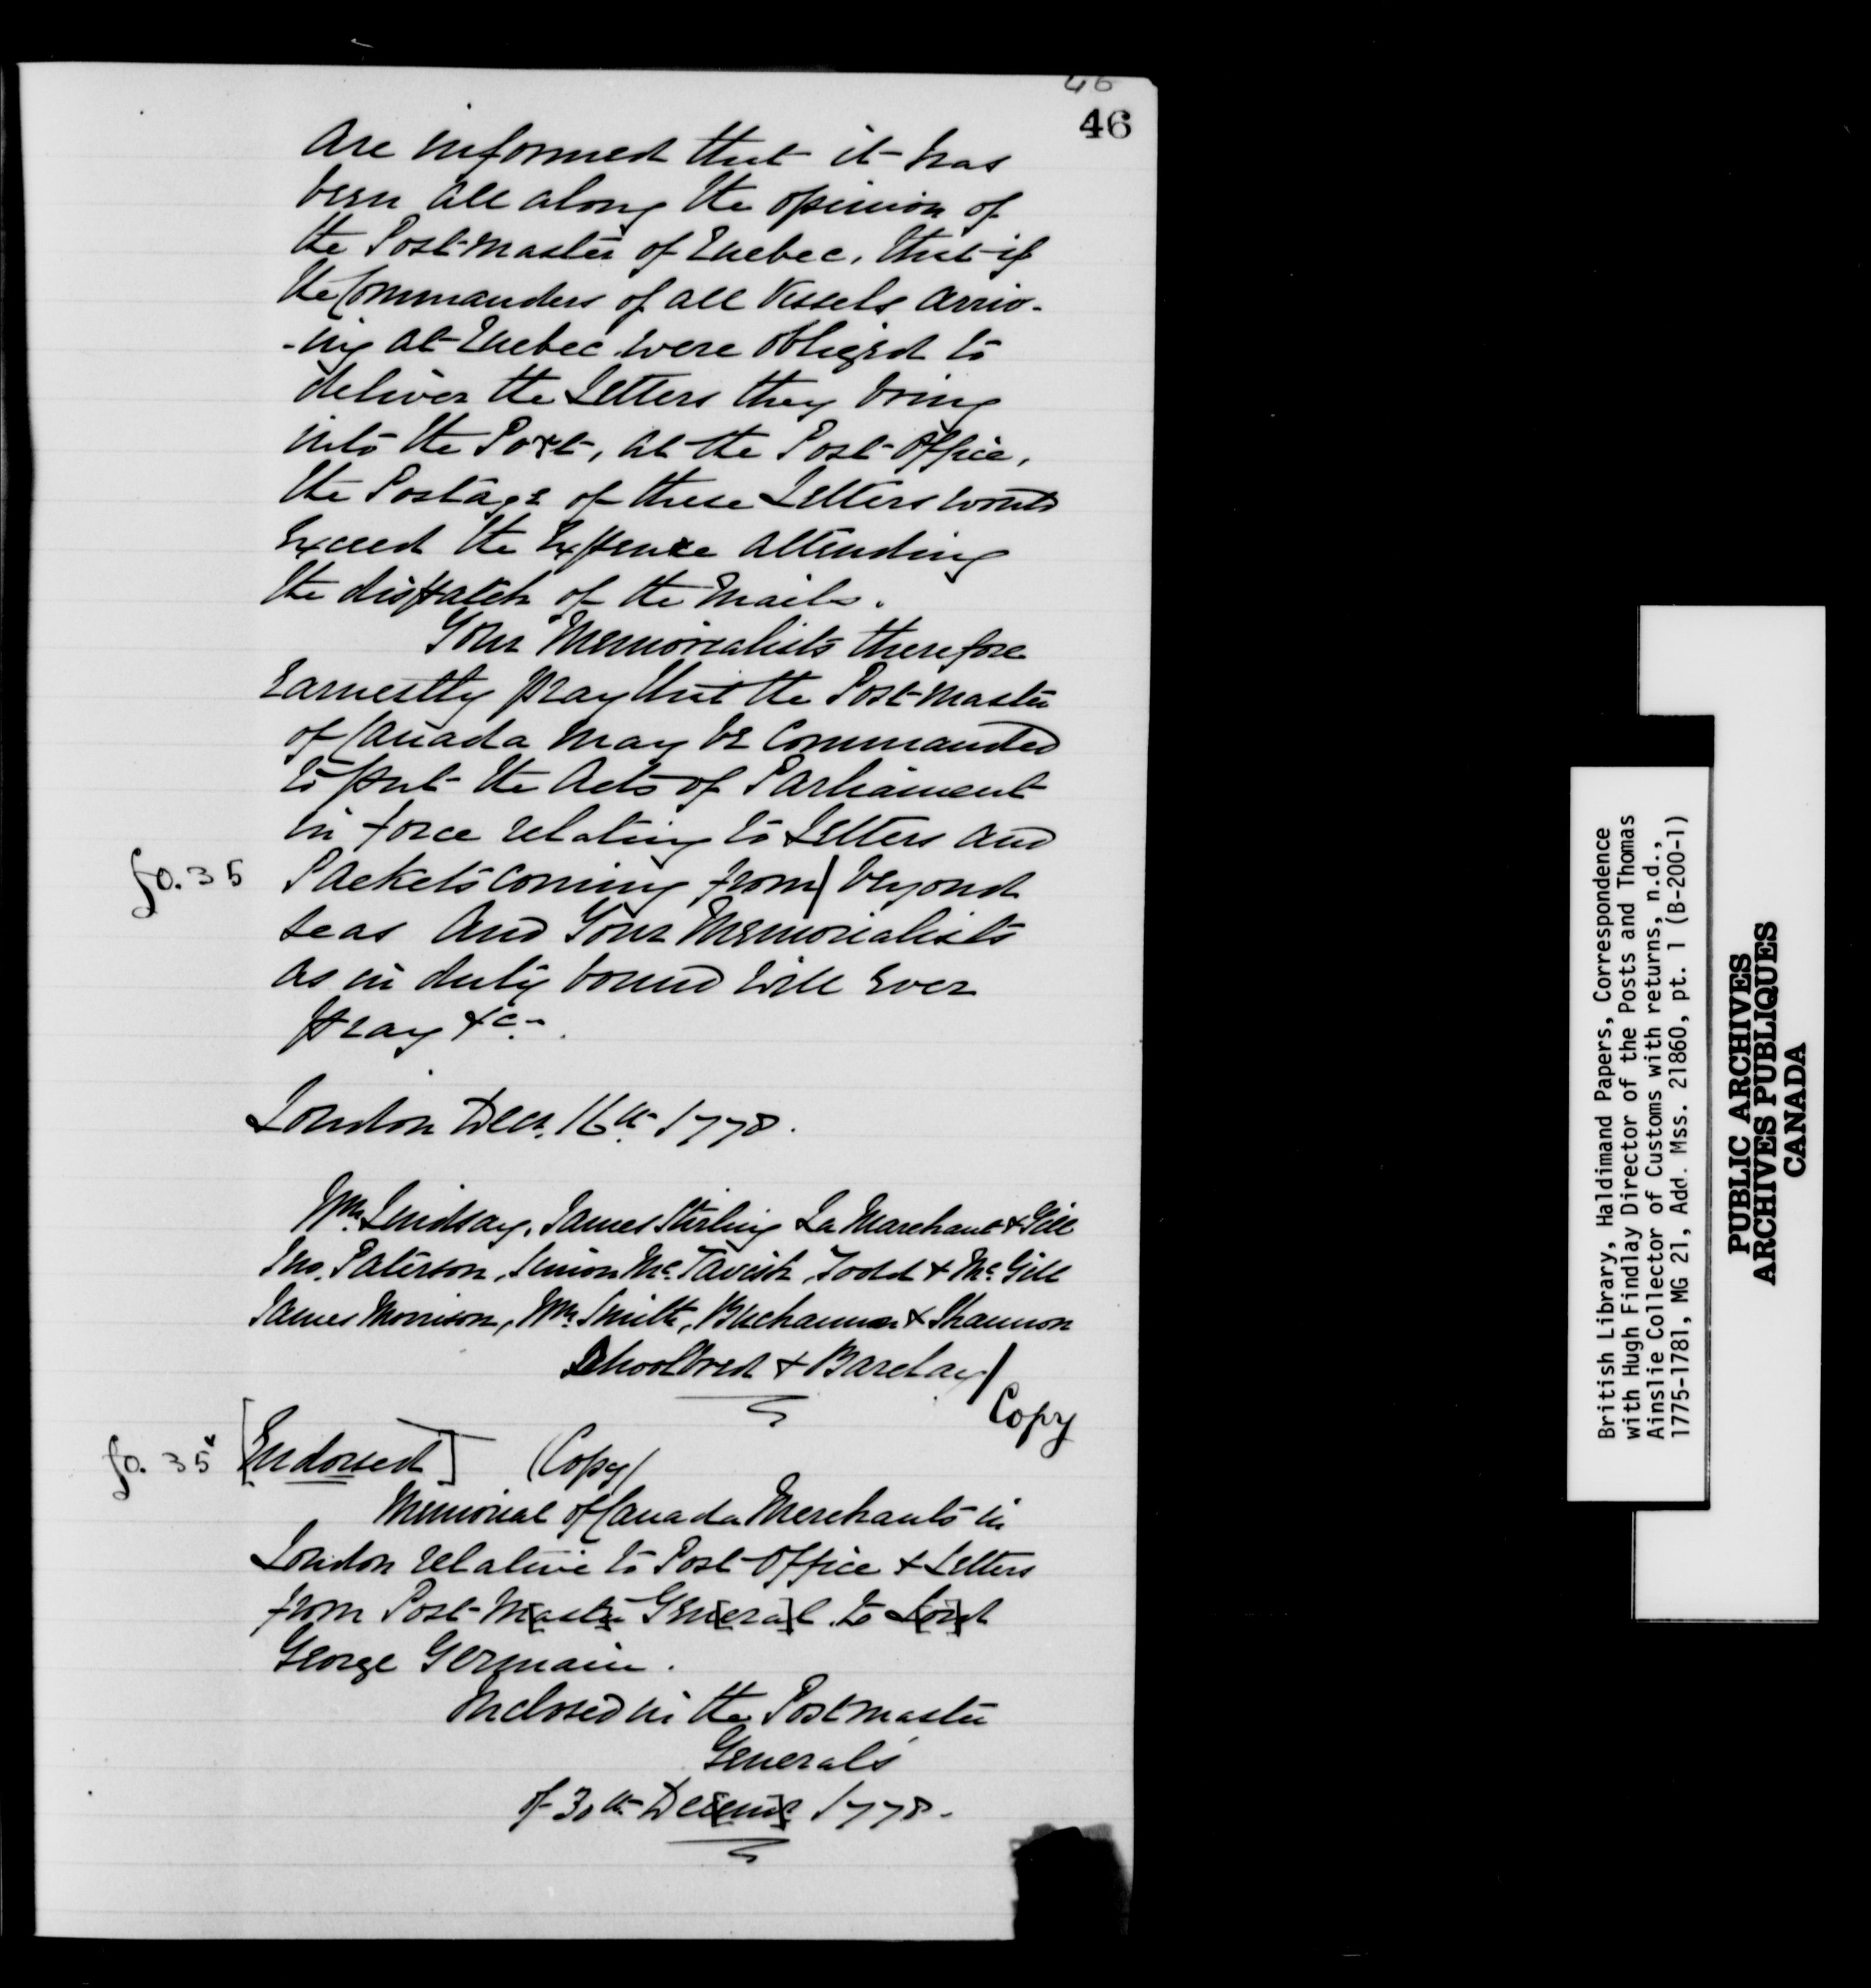 46
46
are informed that it has
been all along the opinion of
the Post-Master of Quebec, that if
the Commanders of all Vessels arriv-
-ing at Quebec were obliged to
deliver the Letters they bring
into the Port, at the Post-Office,
the Postage of these Letters would
exceed the Expence attending
the dispatch of the Mails.
Your Memorialists therefore
earnestly pray that the Post-Master
of Canada may be commanded
to put the Acts of Parliament
in force relating to Letters and
fo. 35 Packets coming from/ beyond
seas and Your Memorialists
as in duty bound will ever
pray &c.
London Decr. 16th 1778.
Wm. Lindsay, James Stirling La Marchant & Gill
Jno. Paterson, Simon McTavish, Todd & McGill
James Morrison, Wm. Smith, Buchannan & Shannon
Schoolbred & Barclay/
Copy
fo. 35b [Endorsed] (Copy)
Memorial of Canada Merchants in
London relative to Post-Office & Letters
from Post-M[aste]r Gen[era]l to L[or]d
George Germain.
Inclosed in the Postmaster
General's
of 30th Dec[em]r 1778.
British Library, Haldimand Papers, Correspondence
with Hugh Findlay Director of the Posts and Thomas
Ainslie Collector of Customs with returns, n.d.,
1775-1781, MG 21, Add. Mss. 21860, pt. 1 (B-200-1)
PUBLIC ARCHIVES
ARCHIVES PUBLIQUES
CANADA